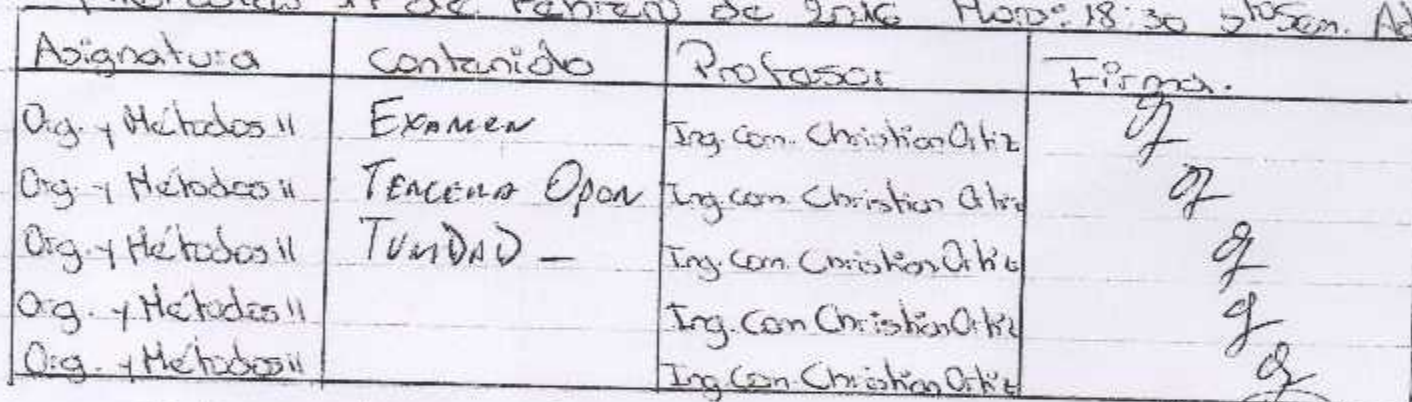 de Febrero de 2016 Hora: 18:30 5to Sem. Ad
Asignatura Contenido Profesor Firma.
Org. y Métodos II EXAMEN Ing. Com. Christian Ortiz
Org. y Métodos II TERCERA OPOR Ing. Com. Christian Ortiz
Org. y Métodos II TUNIDAD — Ing. Com. Christian Ortiz
Org. y Métodos II Ing. Com Christian Ortiz
Org. y Métodos II Ing. Com. Christian Ortiz